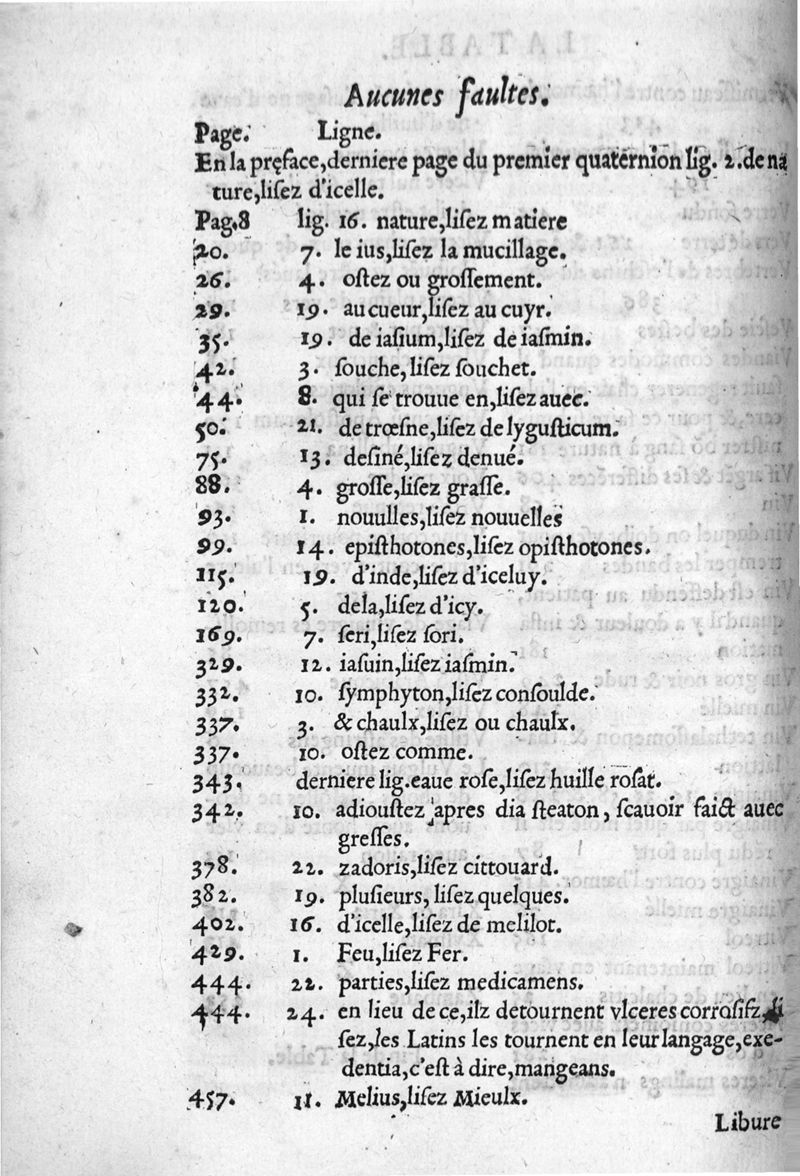 Aucunes faultes.
Page. Ligne.
En la pręface,derniere page du premier quaternion lig. 2.de na
ture,liſez d'icelle.
Pag.8 lig. 16. nature,liſez matiere
20. 7. le ius,liſez la mucillage.
26. 4. oſtez ou groſſement.
29. 19. au cueur,liſez au cuyr.
35. 19. de iaſium,liſez de iaſmin.
42. 3. ſouche,liſez ſouchet.
44. 8. qui ſe trouue en,liſez auec.
50. 21. de trœſne,liſez de lyguſticum.
75. 13. deſiné,liſez denué.
88. 4. groſſe,liſez graſſe.
93. 1. nouulles,liſez nouuelles
99. 14. epiſthotones,liſez opiſthotones.
115. 19. d'inde,liſez d'iceluy.
120. 5. dela,liſez d'icy.
169. 7. ſeri,liſez ſori.
329. 12. iaſuin,liſez iaſmin.
332. 10. ſymphyton,liſez conſoulde.
337. 3. & chaulx,liſez ou chaulx.
337. 10. oſtez comme.
343. derniere lig.eaue roſe,liſez huille roſat.
342. 10. adiouſtez apres dia ſteaton, ſcauoir faict auec
greſſes.
378. 22. zadoris,liſez cittouard.
382. 19. pluſieurs, liſez quelques.
402. 16. d'icelle,liſez de melilot.
429. 1. Feu,liſez Fer.
444. 22. parties,liſez medicamens.
444. 24. en lieu de ce,ilz detournent vlceres corroſifz,li
ſez,les Latins les tournent en leur langage,exe-
dentia,c'eſt à dire,mangeans.
457. 11. Melius,liſez Mieulx.
Libure